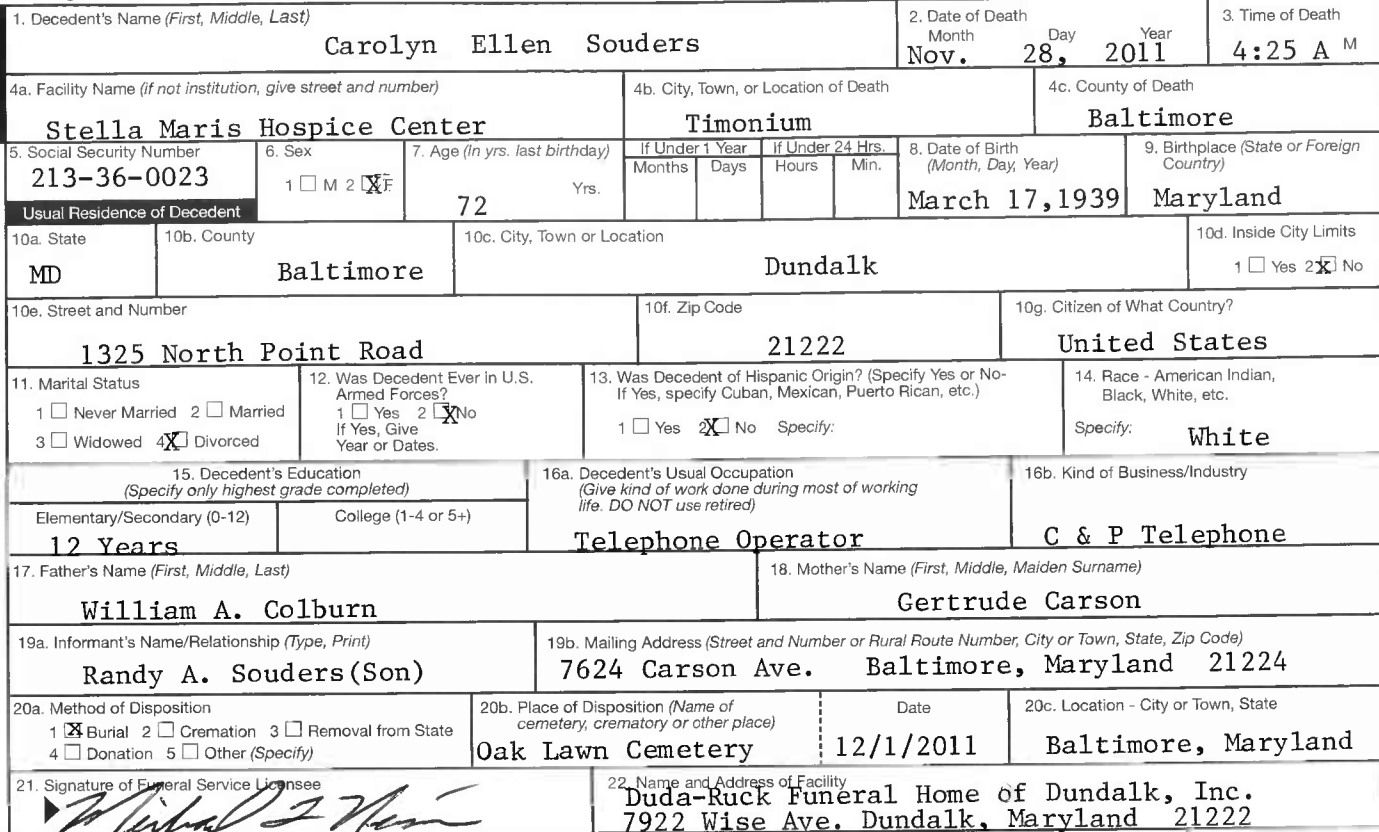 1. Decedent's Name (First, Middle, Last)
Carolyn Ellen Souders
2. Date of Death
Month Day Year
Nov. 28, 2011
3. Time of Death
4:25 A M
4a. Facility Name (if not institution, give street and number)
Stella Maris Hospice Center
4b. City, Town, or Location of Death
Timonium
4c. County of Death
Baltimore
5. Social Security Number
213-36-0023
6. Sex
1 ☐ M 2 ☒ F
7. Age (In yrs. last birthday)
72 Yrs.
If Under 1 Year
Months Days
If Under 24 Hrs.
Hours Min.
8. Date of Birth
(Month, Day, Year)
March 17,1939
9. Birthplace (State or Foreign
Country)
Maryland
Usual Residence of Decedent
10a. State
MD
10b. County
Baltimore
10c. City, Town or Location
Dundalk
10d. Inside City Limits
1 ☐ Yes 2 ☒ No
10e. Street and Number
1325 North Point Road
10f. Zip Code
21222
10g. Citizen of What Country?
United States
11. Marital Status
1 ☐ Never Married 2 ☐ Married
3 ☐ Widowed 4 ☒ Divorced
12. Was Decedent Ever in U.S.
Armed Forces?
1 ☐ Yes 2 ☒ No
If Yes, Give
Year or Dates.
13. Was Decedent of Hispanic Origin? (Specify Yes or No-
If Yes, specify Cuban, Mexican, Puerto Rican, etc.)
1 ☐ Yes 2 ☒ No Specify:
14. Race - American Indian,
Black, White, etc.
Specify: White
15. Decedent's Education
(Specify only highest grade completed)
Elementary/Secondary (0-12) College (1-4 or 5+)
12 Years
16a. Decedent's Usual Occupation
(Give kind of work done during most of working
life. DO NOT use retired)
Telephone Operator
16b. Kind of Business/Industry
C & P Telephone
17. Father's Name (First, Middle, Last)
William A. Colburn
18. Mother's Name (First, Middle, Maiden Surname)
Gertrude Carson
19a. Informant's Name/Relationship (Type, Print)
Randy A. Souders(Son)
19b. Mailing Address (Street and Number or Rural Route Number, City or Town, State, Zip Code)
7624 Carson Ave. Baltimore, Maryland 21224
20a. Method of Disposition
1 ☒ Burial 2 ☐ Cremation 3 ☐ Removal from State
4 ☐ Donation 5 ☐ Other (Specify)
20b. Place of Disposition (Name of
cemetery, crematory or other place)
Oak Lawn Cemetery
Date
12/1/2011
20c. Location - City or Town, State
Baltimore, Maryland
21. Signature of Funeral Service Licensee
22. Name and Address of Facility
Duda-Ruck Funeral Home of Dundalk, Inc.
7922 Wise Ave. Dundalk, Maryland 21222